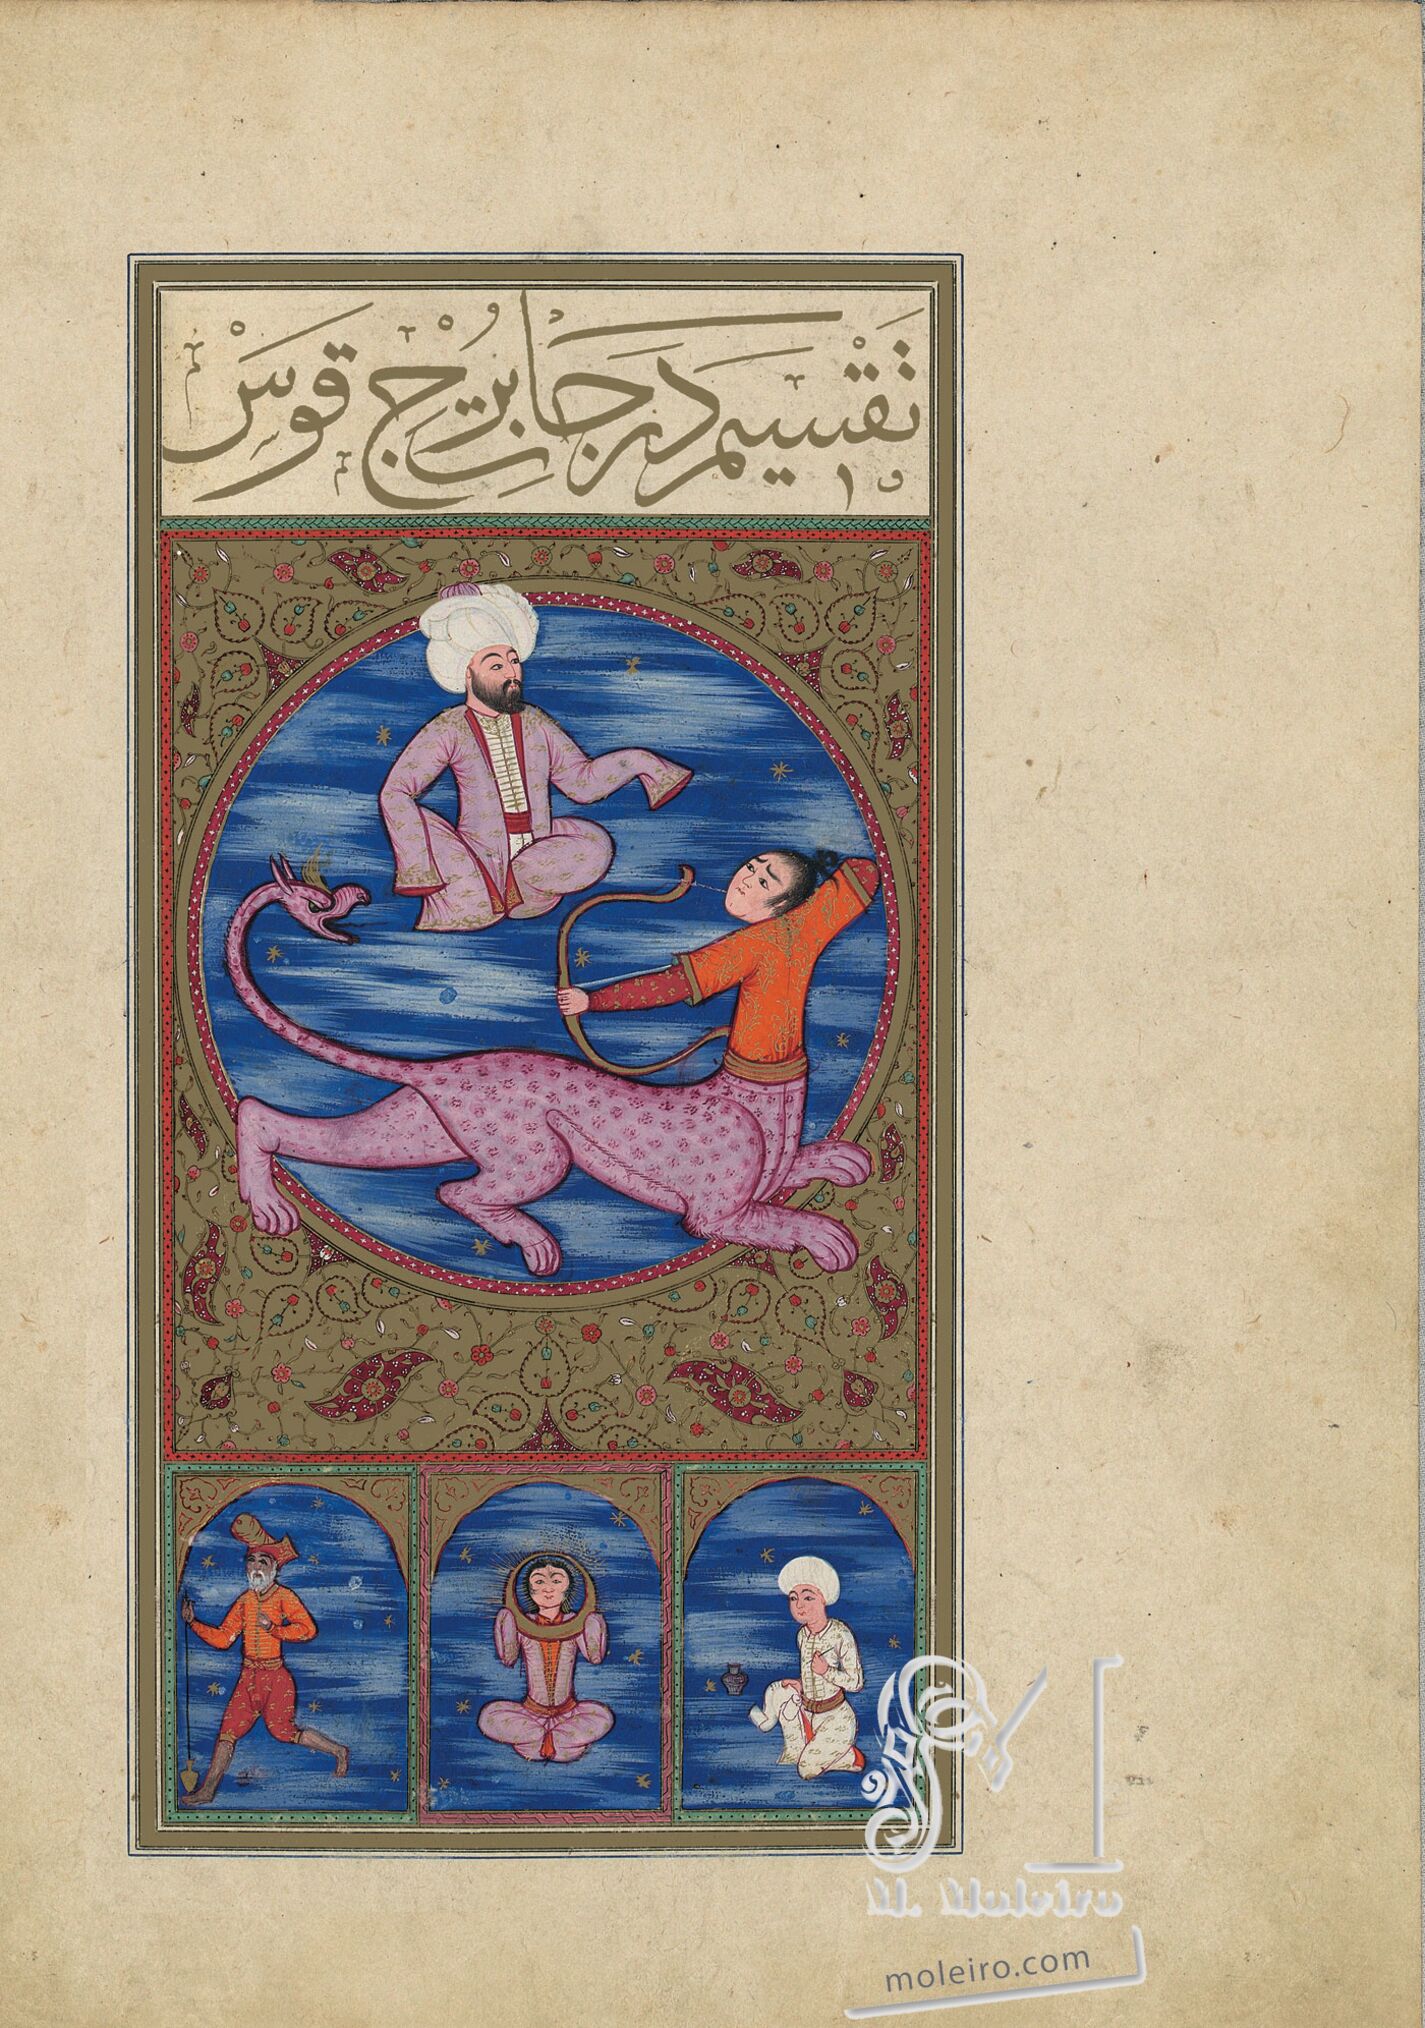 تقسيم درجات برج قوس
M. Moleiro
moleiro.com